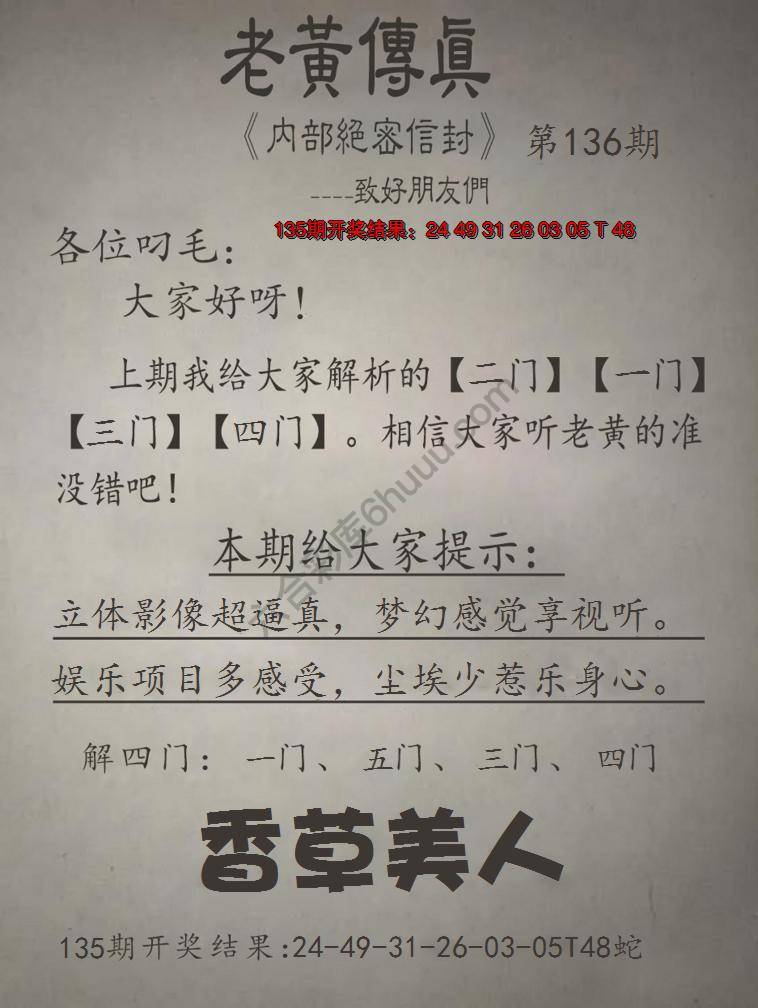 老黃傳眞
《内部絕密信封》 第136期
----致好朋友們
135期开奖结果：24 49 31 26 03 05 T 48
各位叼毛：
大家好呀！
上期我给大家解析的【二门】【一门】
【三门】【四门】。相信大家听老黄的准
没错吧！
六合彩库6huuu.com
本期给大家提示：
立体影像超逼真，梦幻感觉享视听。
娱乐项目多感受，尘埃少惹乐身心。
解四门：一门、五门、三门、四门
香草美人
135期开奖结果:24-49-31-26-03-05T48蛇